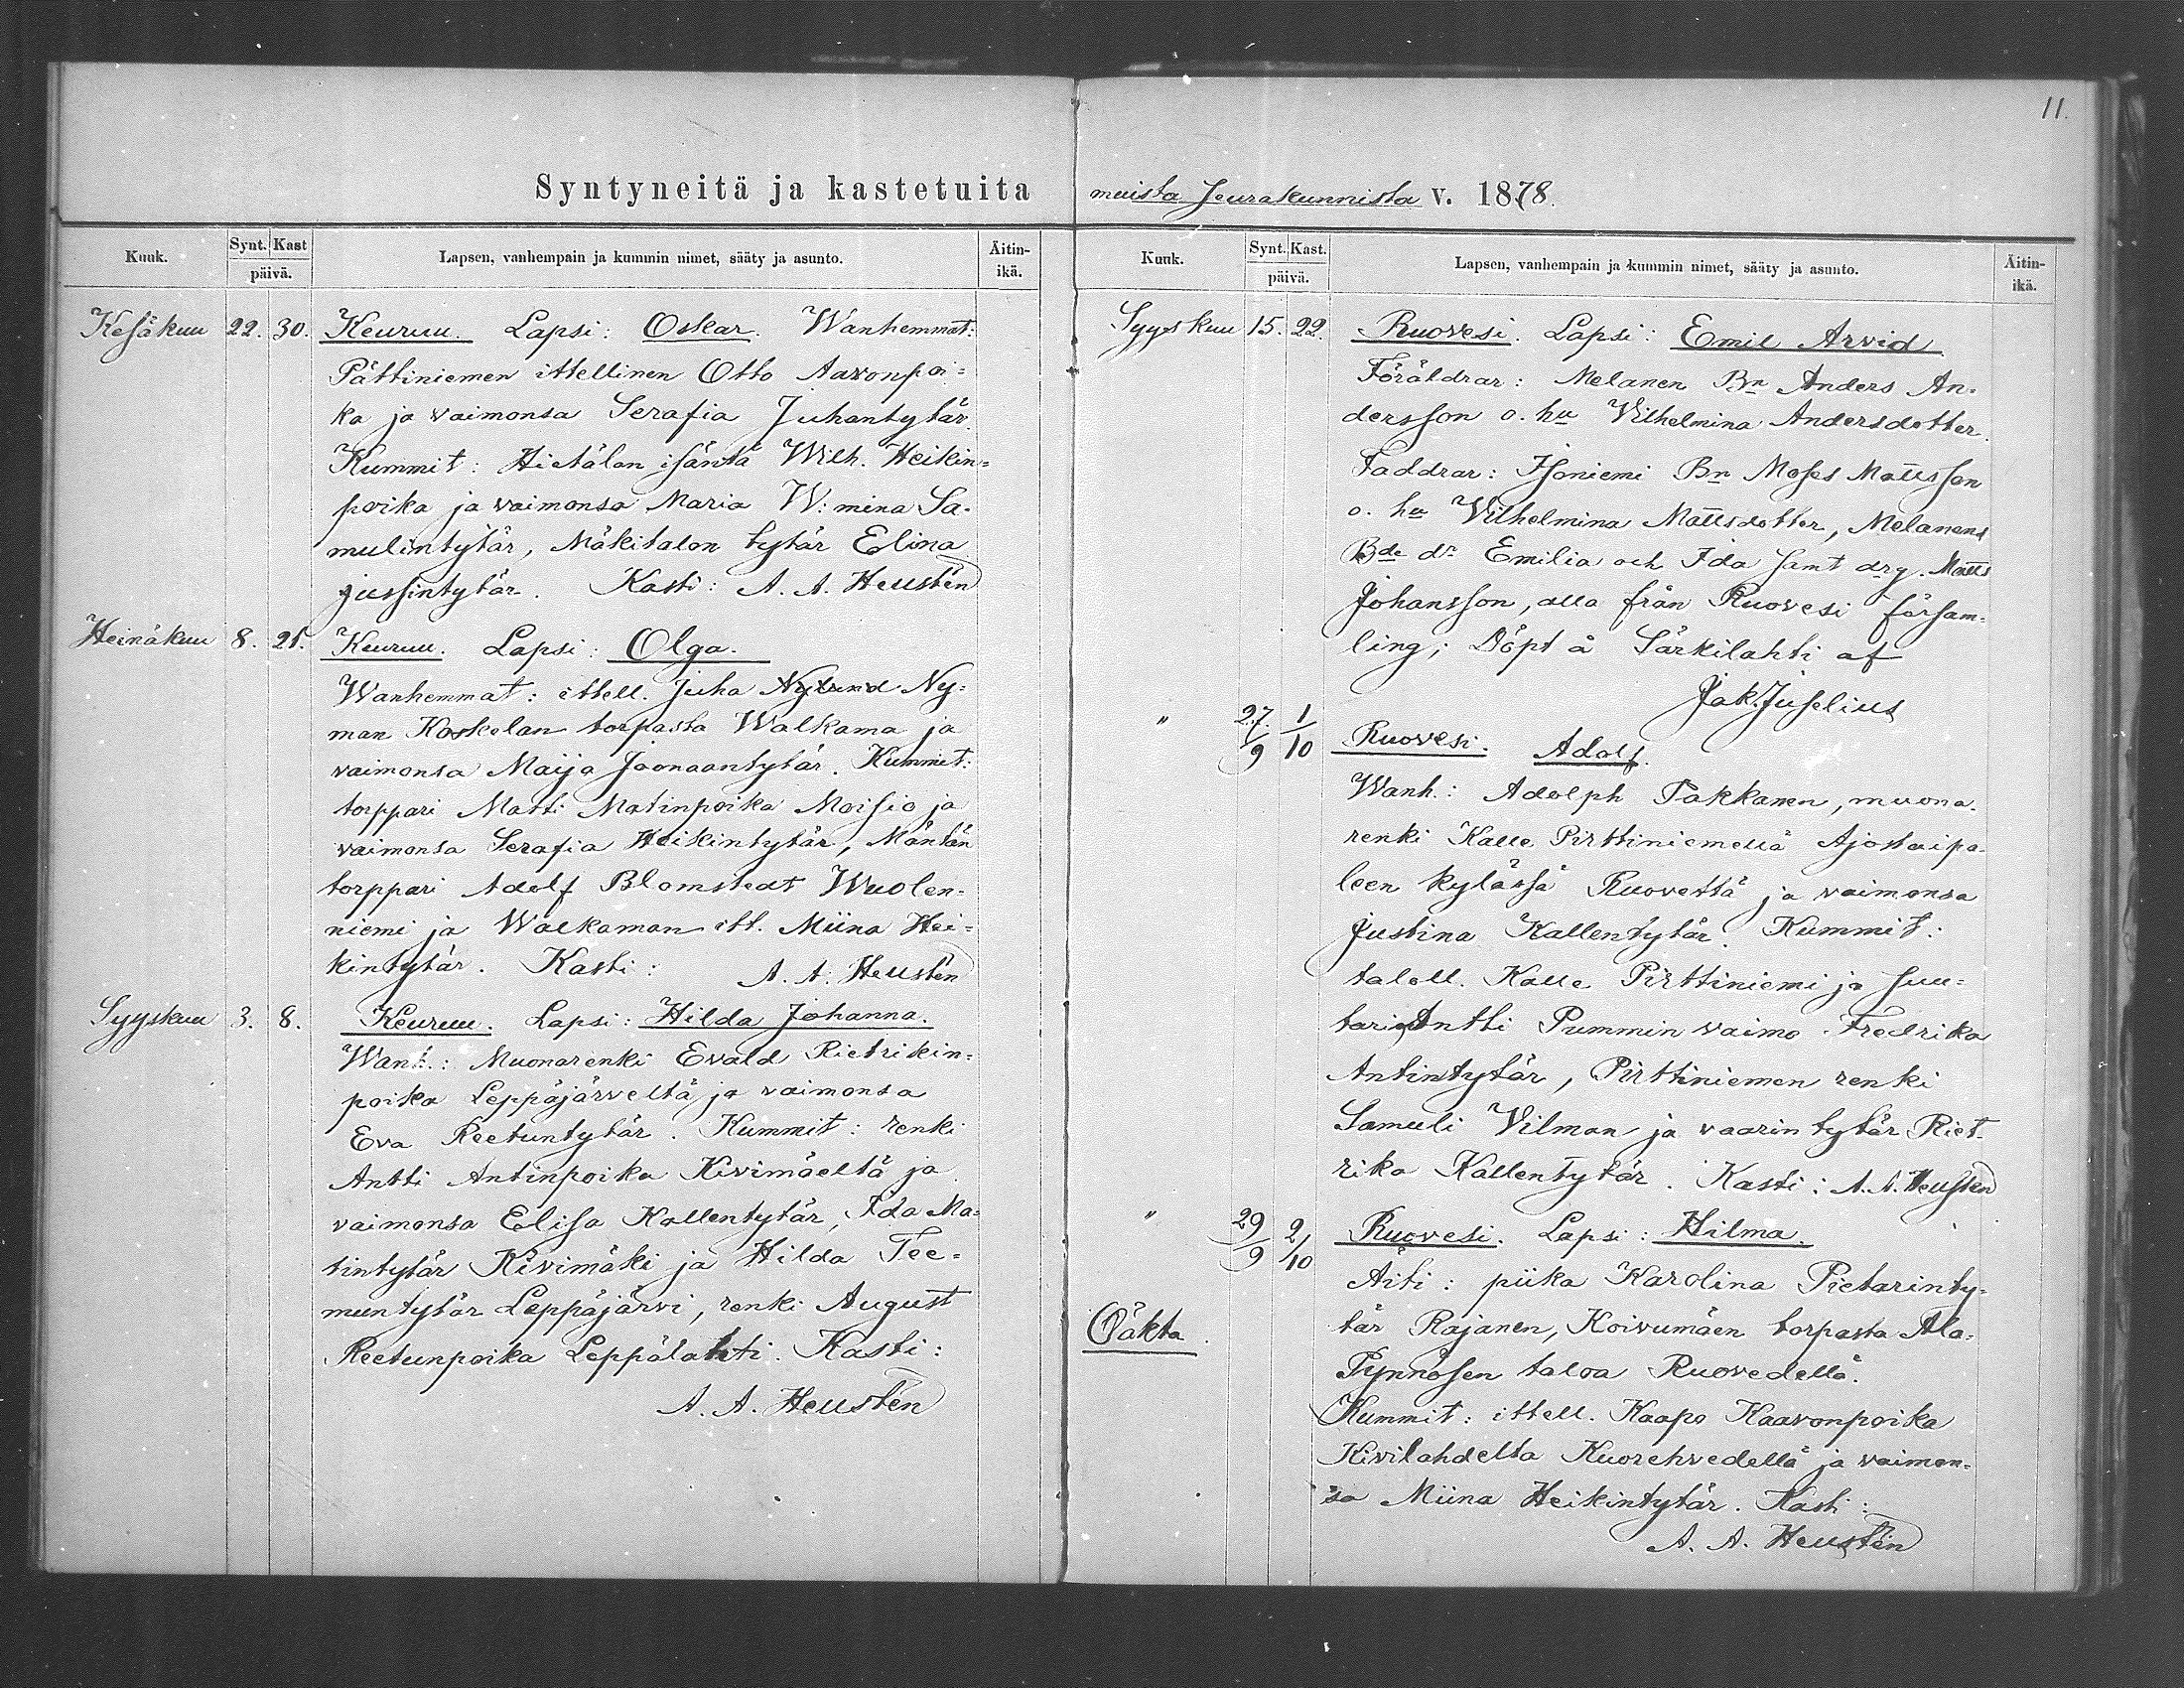 11.
Syntyneitä ja kastetuita muista seurakunnista v. 1878.
Kuuk. Synt. Kast päivä. Lapsen, vanhempain ja kummin nimet, sääty ja asunto. Äitin-ikä.
Kesäkuu 22. 30. Keuruu. Lapsi: Oskar. Wanhemmat:
Pättiniemen ittellinen Otto Aavonpoi=
ka ja vaimonsa Serafia Juhantytär.
Kummit: Hietälan isäntä Wilh. Heikin=
poika ja vaimonsa Maria W:mina Sa-
mulintytär, Mäkitalon tytär Elina
Jussintytär. Kasti: A. A. Heustén
Heinäkuu 8. 21. Keuruu. Lapsi: Olga.
Wanhemmat: ittell. Juha Nylund Ny=
man Koskelan torpasta Walkama ja
vaimonsa Maija Joonaantytär. Kummit:
torppari Matti Matinpoika Moisio ja
vaimonsa Serafia Heikintytär, Mäntän
torppari Adolf Blomstedt Wuolen=
niemi ja Walkaman itt. Miina Hei=
kintytär. Kasti: A. A. Heustén
Syyskuu 3. 8. Keuruu. Lapsi: Hilda Johanna.
Wanh.: Muonarenki Evald Rietrikin=
poika Leppäjärveltä ja vaimonsa
Eva Reetuntytär. Kummit: renki
Antti Antinpoika Kivimäeltä ja
vaimonsa Elisa Kallentytär, Ida Ma=
tintytär Kivimäki ja Hilda Tee=
muntytär Leppäjärvi, renki August
Reetunpoika Leppälahti. Kasti:
A. A. Heustén
Kuuk. Synt. Kast. päivä. Lapsen, vanhempain ja kummin nimet, sääty ja asunto. Äitin-ikä.
Syyskuu 15. 22. Ruovesi. Lapsi: Emil Arvid.
Föräldrar: Melanen Bn Anders An-
dersson o. hu Vilhelmina Andersdotter.
Faddrar: Isoniemi Bn Moses Mattsson
o. hu Vilhelmina Mattsdotter, Melanens
Bde dr Emilia och Ida samt drg. Matts
Johansson, alla från Ruovesi försam-
ling; Döpt å Särkilahti af
Jak. Juselius
" 27./9 1/10 Ruovesi. Adolf.
Wanh.: Adolph Pakkanen, muona-
renki Kalle Pirttiniemellä Ajostaipa-
leen kylässä Ruovettä ja vaimonsa
Justina Kallentytär. Kummit:
taloll. Kalle Pirttiniemi ja suu=
tari Antti Pummin vaimo Fredrika
Antintytär, Pirttiniemen renki
Samuli Vilman ja vaarin tytär Riet-
rika Kallentytär. Kasti: A. A. Heusten
" 29/9 2/10 Ruovesi. Lapsi: Hilma.
Äiti: piika Karolina Pietarinty-
Oäkta. tär Rajanen, Koivumäen torpasta Ala-
Pynnösen taloa Ruovedellä.
Kummit: ittell. Kaapo Kaavonpoika
Kivilahdelta Kuorehvedellä ja vaimon-
sa Miina Heikintytär. Kasti:
A. A. Heustén